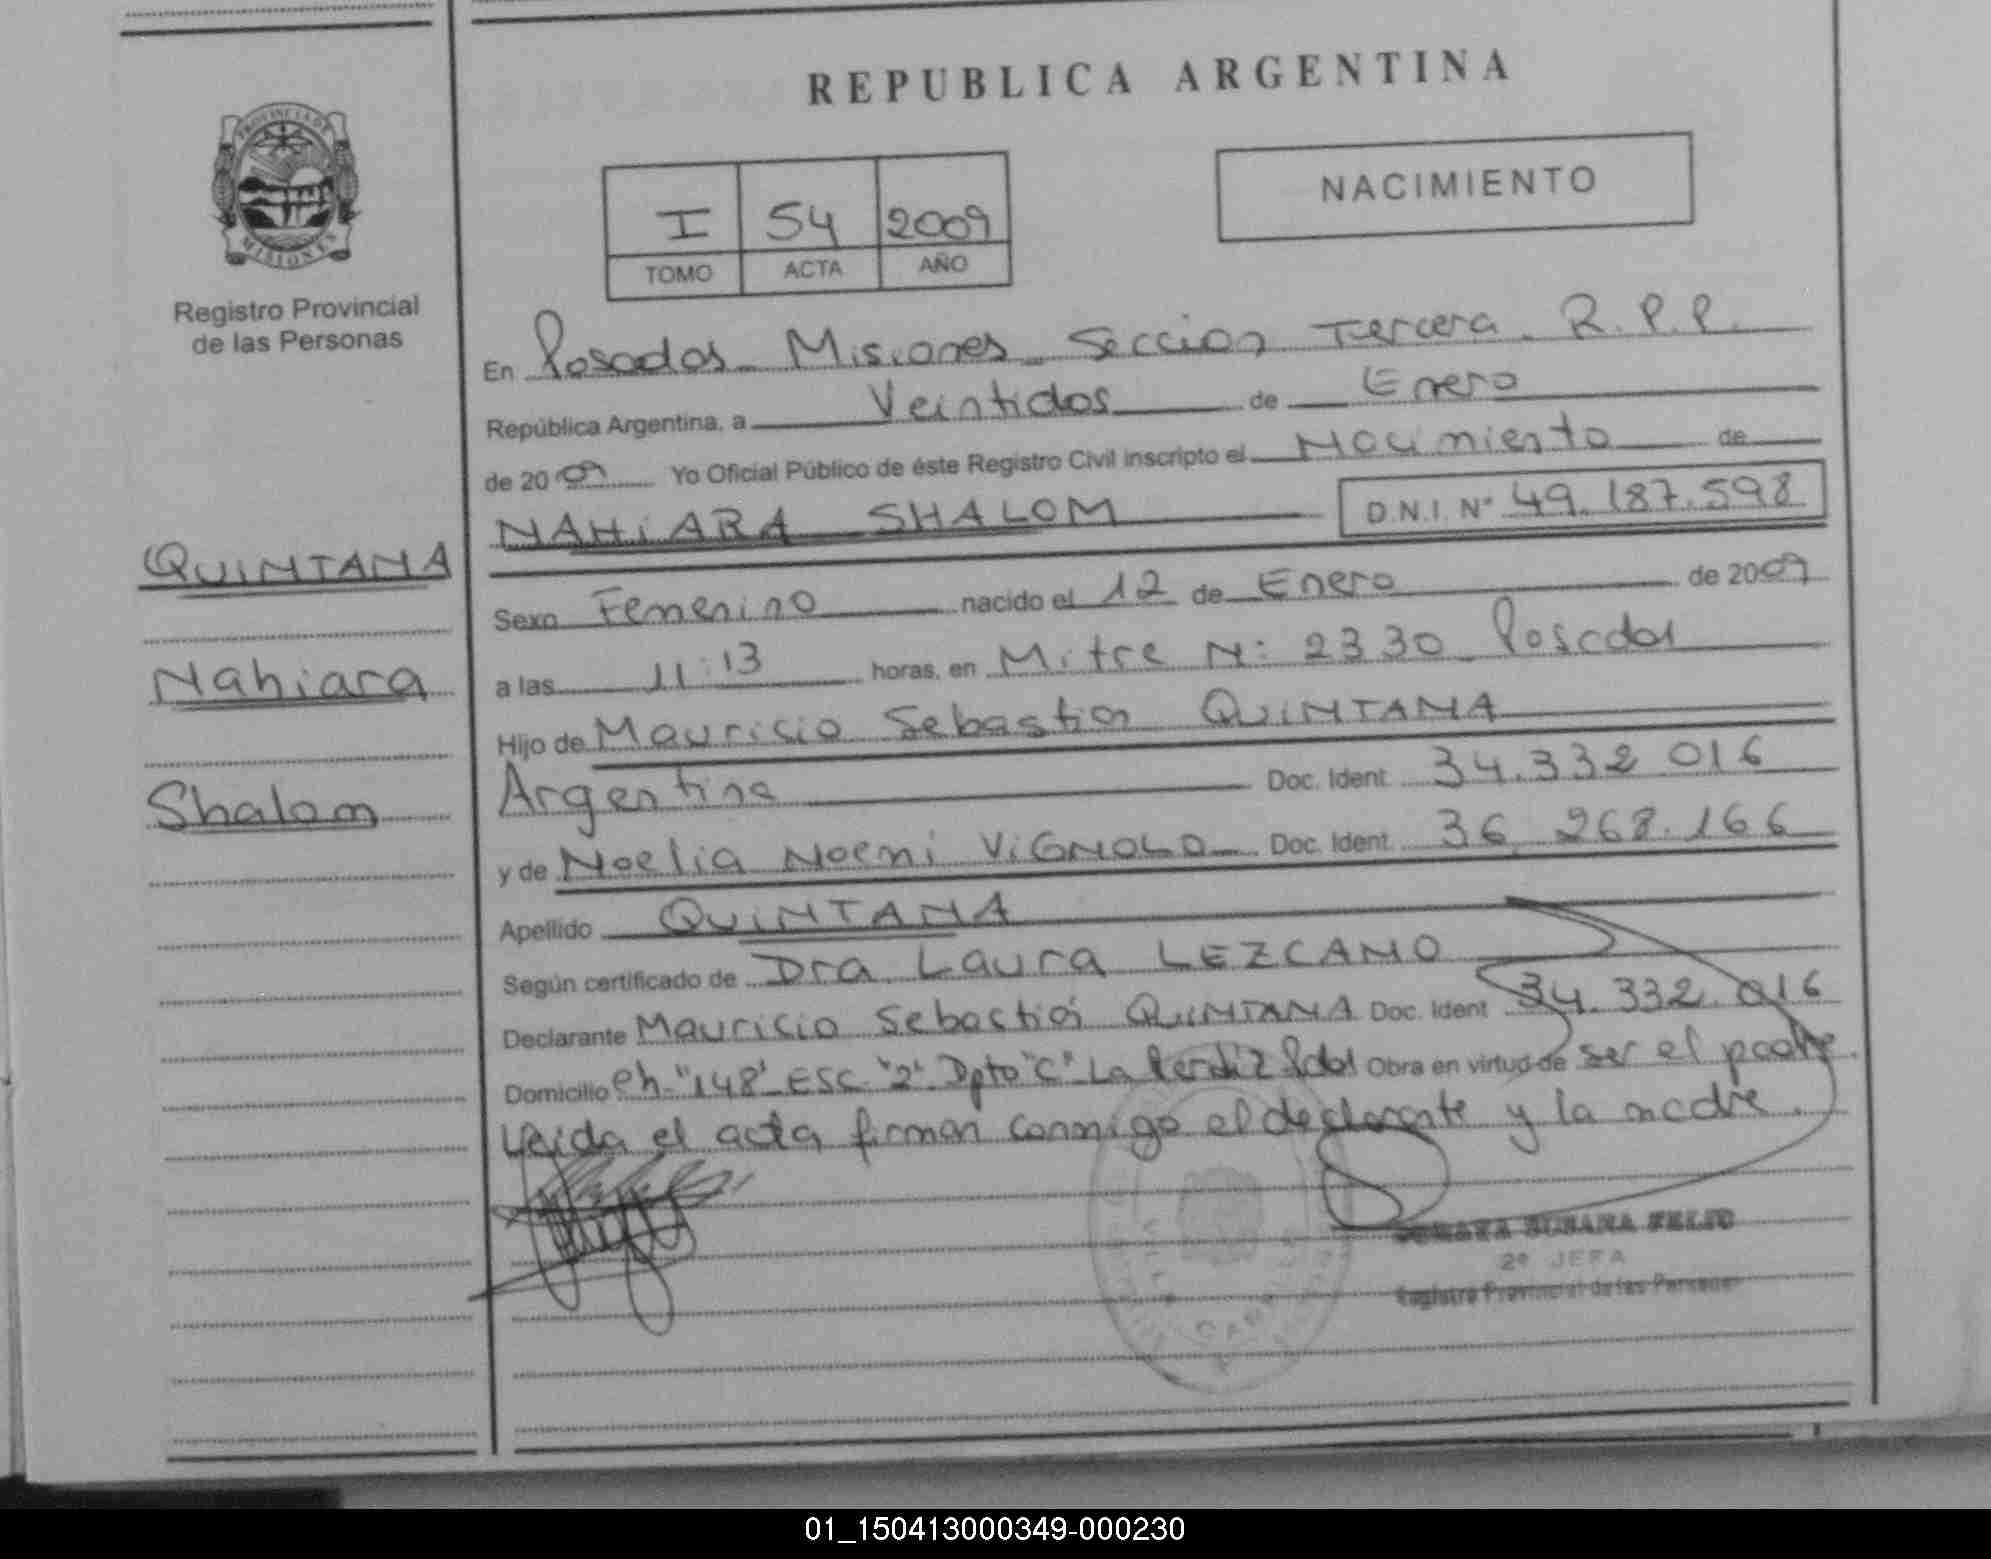 REPUBLICA ARGENTINA
PROVINCIA DE
MISIONES
Registro Provincial
de las Personas
I 54 2009
TOMO ACTA AÑO
NACIMIENTO
En Posadas Misiones Seccion Tercera R.P.P.
República Argentina, a Veintidos de Enero
de 2009 Yo Oficial Público de éste Registro Civil inscripto el Nacimiento de
NAHIARA SHALOM D.N.I. Nº 49.187.598
QUINTANA
Nahiara
Shalom
Sexo Femenino nacido el 12 de Enero de 2009
a las 11:13 horas, en Mitre N: 2330 Posadas
Hijo de Mauricio Sebastian QUINTANA
Argentina Doc. Ident. 34.332.016
y de Noelia Noemi ViGNOLO Doc. Ident. 36.268.166
Apellido QUINTANA
Según certificado de Dra Laura LEZCANO
Declarante Mauricio Sebastian QUINTANA Doc. Ident 34.332.016
Domicilio Ch. "148" ESC. "2" Dpto "C" La Perdiz Pdas Obra en virtud de ser el padre.
Leida el acta firman conmigo el declarante y la madre.
SUSANA FELIP
2º JEFA
Registro Provincial de las Personas
01_150413000349-000230